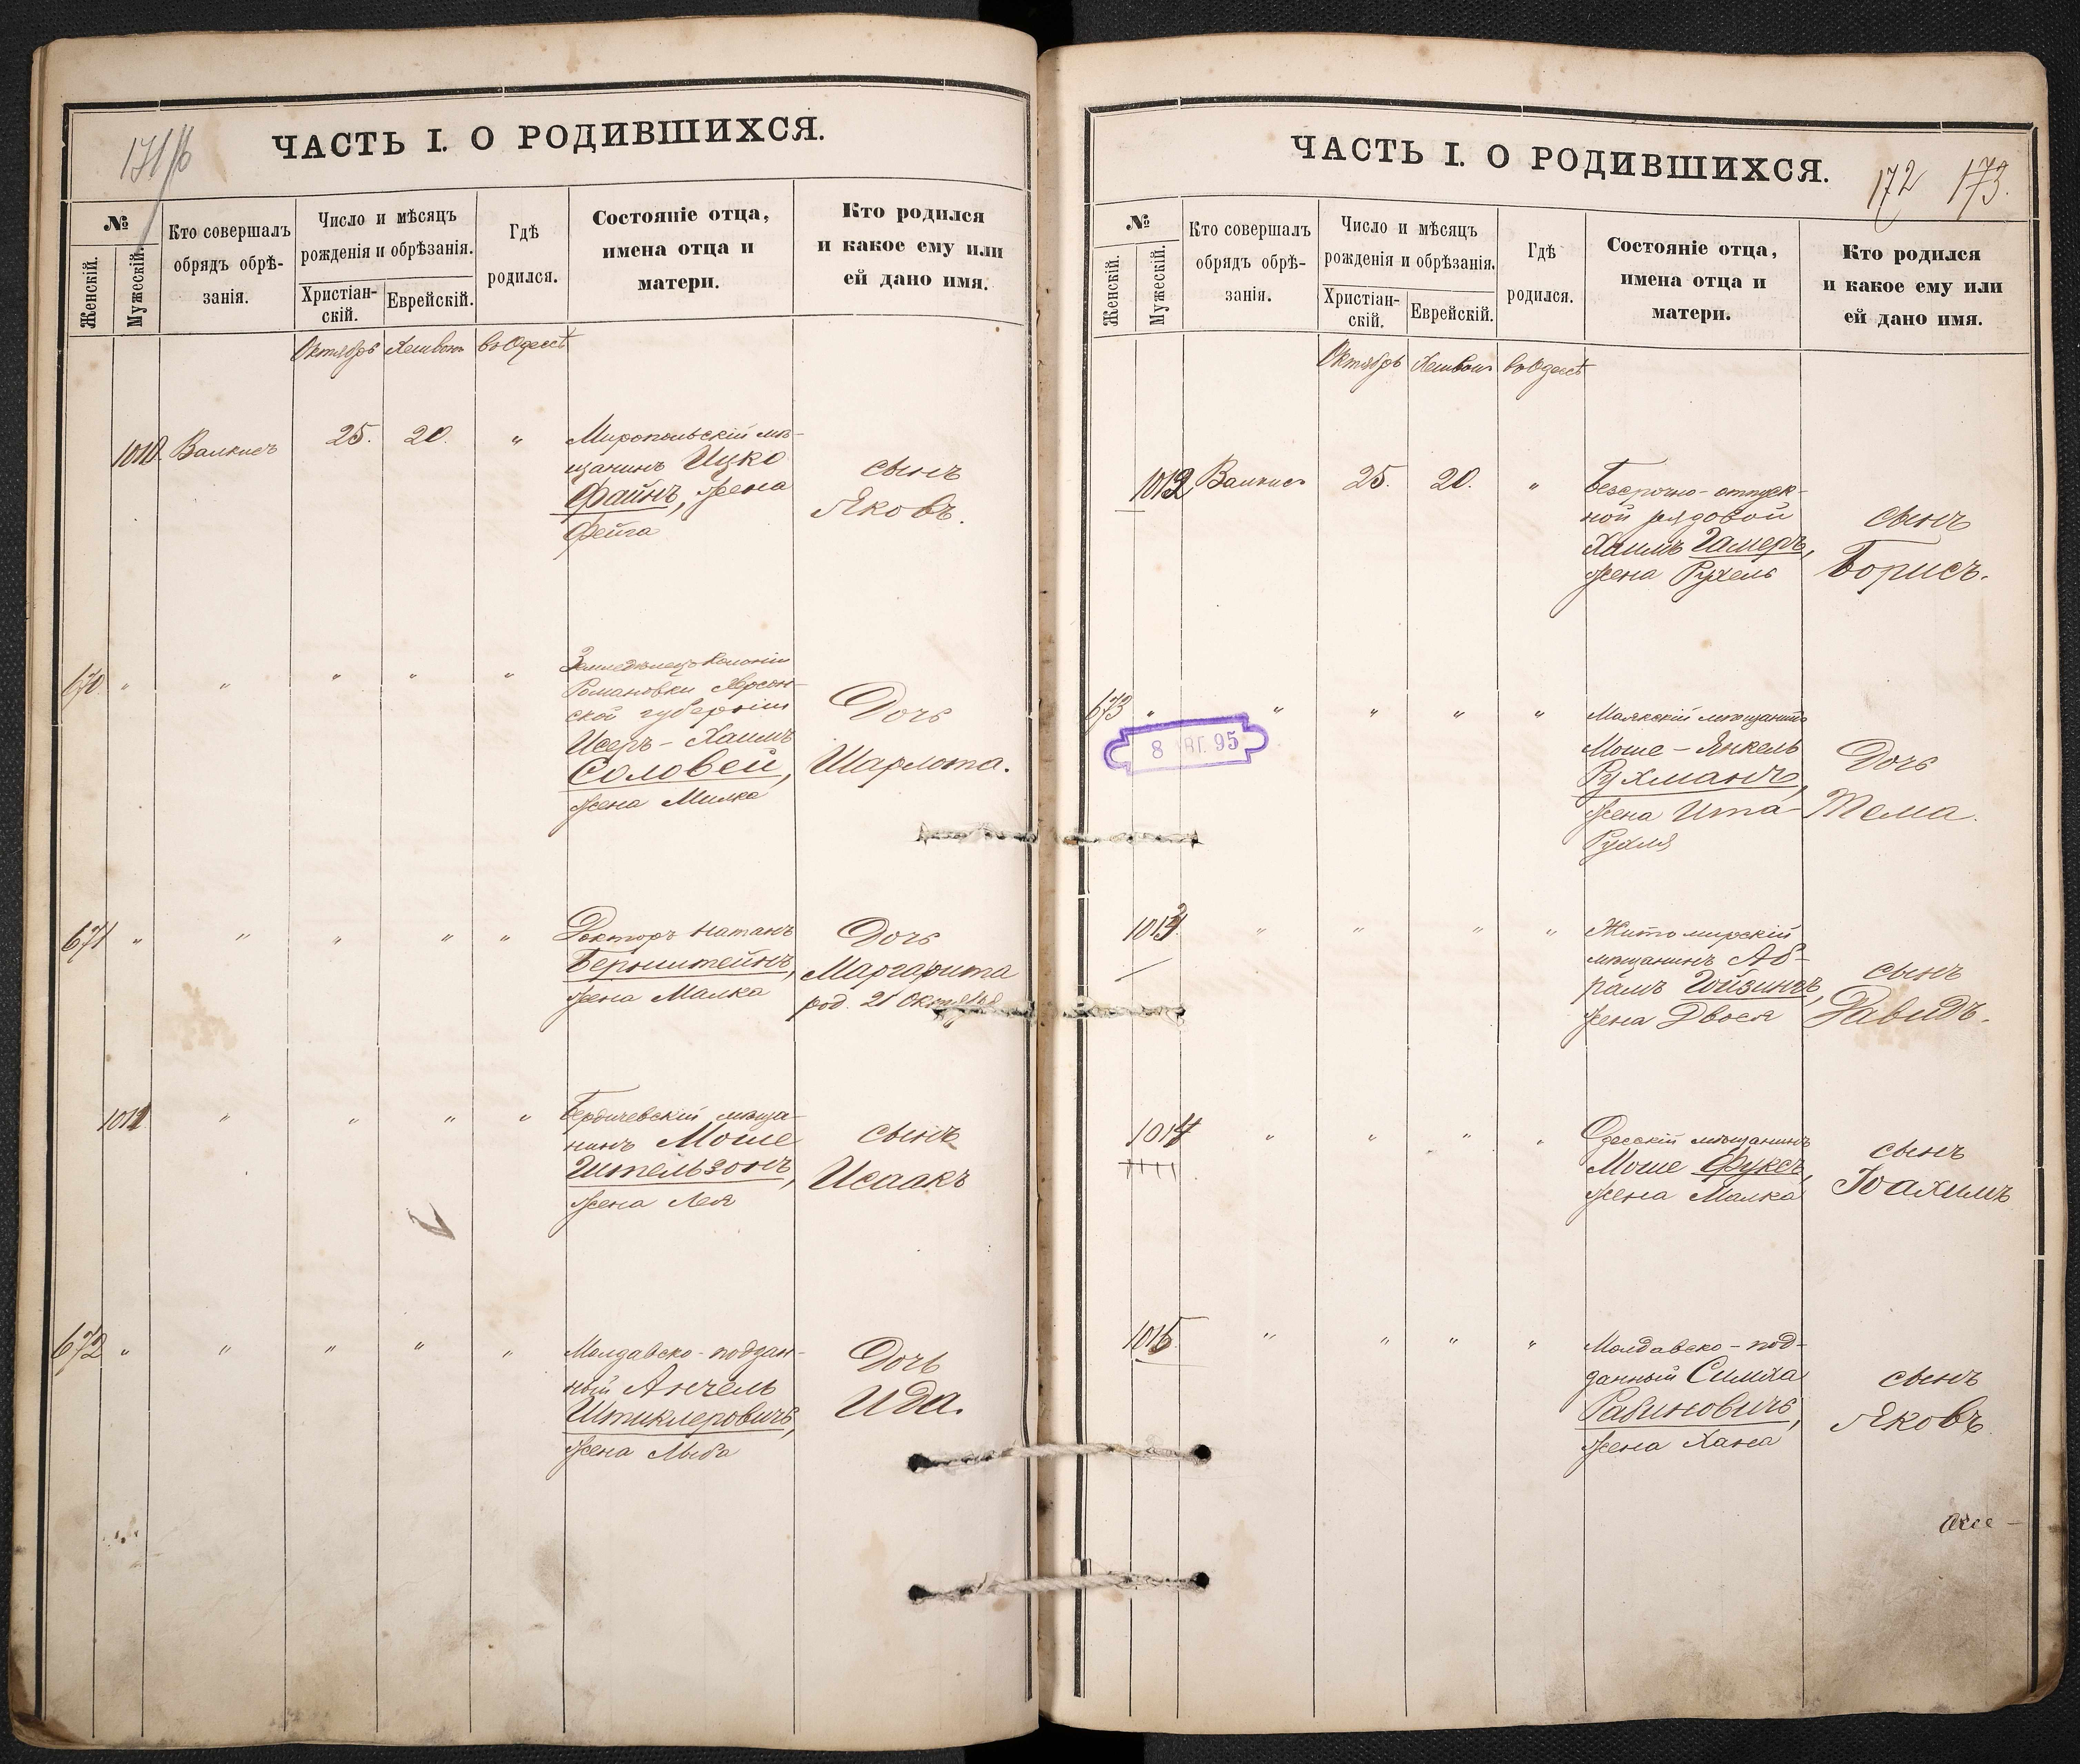 171/б
ЧАСТЬ I. О РОДИВШИХСЯ.
№
Женскій.
Мужескій.
Кто совершалъ
обрядъ обрѣ-
занія.
Число и мѣсяцъ
рожденія и обрѣзанія.
Христіан-
скій.
Еврейскій.
Гдѣ
родился.
Состояніе отца,
имена отца и
матери.
Кто родился
и какое ему или
ей дано имя.
Октябрь Хешвонъ въ Одессѣ
1010. Валкисъ 25. 20. "
Миропольскій мѣ-
щанинъ Ицко
Файнъ, жена
Фейга
сынъ
Яковъ.
670. " " " " "
Земледѣлецъ Колоніи
Романовки Херсон-
ской губерніи
Исеръ-Хаимъ
Соловей,
жена Милка
Дочь
Шарлота.
671 " " " " "
Докторъ Натанъ
Бернштейнъ,
жена Малка
Дочь
Маргарита
род. 21 Октября
1011 " " " "
Бердичевскій мѣща-
нинъ Моше
Штельзонъ,
жена Лея
сынъ
Исаакъ
672 " " " " "
Молдавско-поддан-
ный Анчель
Штиклеровичъ,
жена Лыба
Дочь
Ида.
ЧАСТЬ I. О РОДИВШИХСЯ.
172 173.
№
Женскій.
Мужескій.
Кто совершалъ
обрядъ обрѣ-
занія.
Число и мѣсяцъ
рожденія и обрѣзанія.
Христіан-
скій.
Еврейскій.
Гдѣ
родился.
Состояніе отца,
имена отца и
матери.
Кто родился
и какое ему или
ей дано имя.
Октябрь Хешвонъ въ Одессѣ
1012 Валкисъ 25. 20. "
Безсрочно-отпуск-
ной рядовой
Хаимъ Гамеръ,
жена Рухель
сынъ
Борисъ.
673 " " " " "
8 АВГ. 95
Маякскій мѣщанинъ
Моше-Янкель
Рухманъ,
жена Ита-
Рухля
Дочь
Тема.
1013 " " " "
Житомирскій
мѣщанинъ Аб-
рамъ Гойзинъ,
жена Двося
сынъ
Давидъ.
1014 " " " "
Одесскій мѣщанинъ
Моше Фуксъ,
жена Малка
сынъ
Іоахимъ
1015 " " " "
Молдавско-под-
данный Симха
Рабиновичъ,
жена Хана
сынъ
Яковъ.